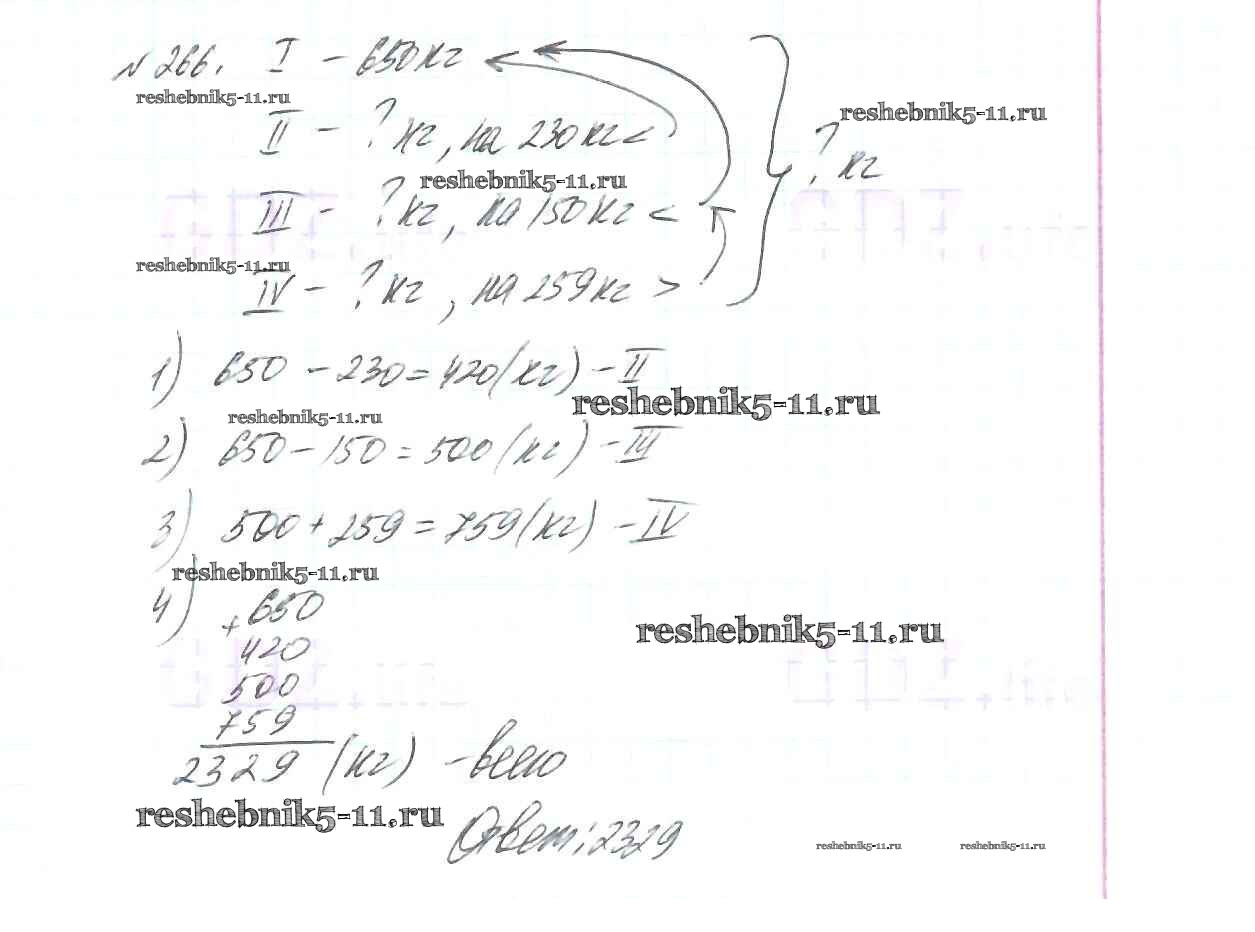 №266. I - 650кг
reshebnik5-11.ru
reshebnik5-11.ru
II - ? кг, на 230кг <
? кг
reshebnik5-11.ru
III - ? кг, на 150кг <
reshebnik5-11.ru
IV - ? кг, на 259кг >
1) 650 - 230 = 420(кг) - II
reshebnik5-11.ru
reshebnik5-11.ru
2) 650 - 150 = 500(кг) - III
3) 500 + 259 = 759(кг) - IV
reshebnik5-11.ru
4) + 650
reshebnik5-11.ru
420
500
759
2329 (кг) - всего
reshebnik5-11.ru
Ответ: 2329
reshebnik5-11.ru reshebnik5-11.ru